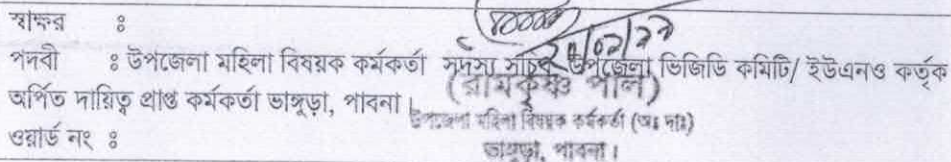 স্বাক্ষর ঃ
পদবী ঃ উপজেলা মহিলা বিষয়ক কর্মকর্তা সদস্য সচিব উপজেলা ভিজিডি কমিটি/ ইউএনও কর্তৃক
অর্পিত দায়িত্ব প্রাপ্ত কর্মকর্তা ভাঙ্গুড়া, পাবনা।
(রামকৃষ্ণ পাল)
উপজেলা মহিলা বিষয়ক কর্মকর্তা (অঃ দাঃ)
ওয়ার্ড নং ঃ
ভাঙ্গুড়া, পাবনা।